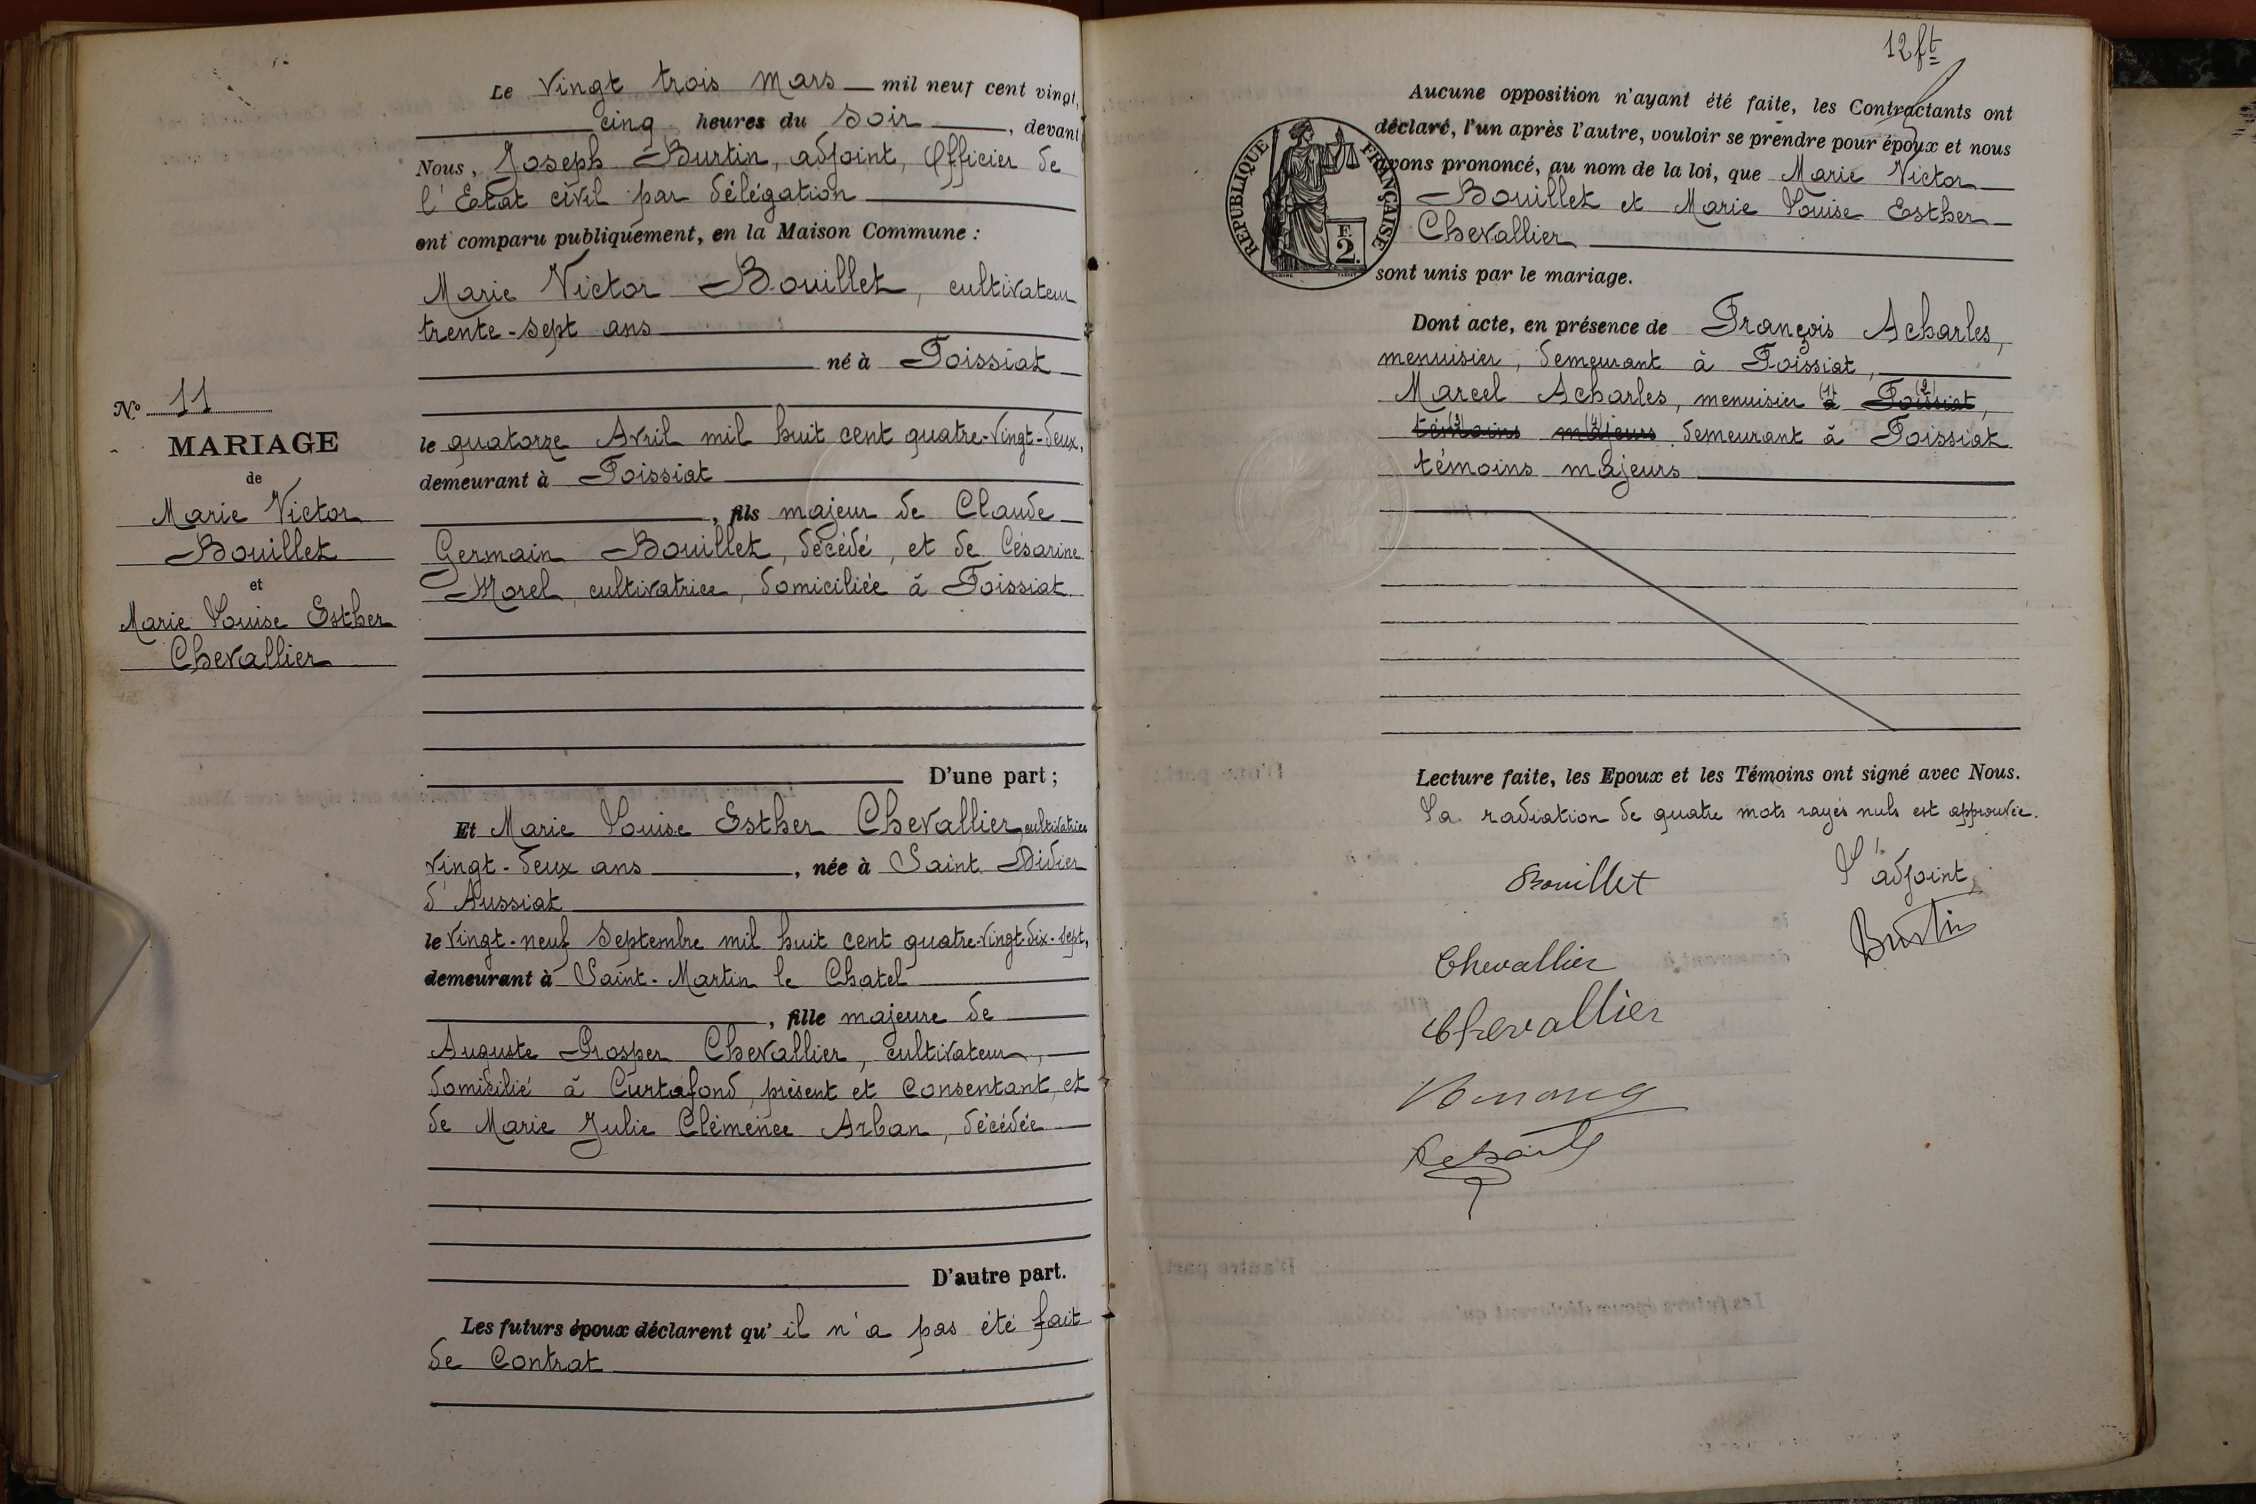 Le vingt trois Mars mil neuf cent vingt,
cinq heures du soir, devant
Nous, Joseph Burtin, adjoint, Officier de
l'Etat civil par délégation
ont comparu publiquement, en la Maison Commune :
Marie Victor Bouillet, cultivateur
trente-sept ans
né à Foissiat
le quatorze Avril mil huit cent quatre-vingt-deux,
demeurant à Foissiat
, fils majeur de Claude
Germain Bouillet, décédé, et de Césarine
Morel, cultivatrice, domiciliée à Foissiat
D'une part ;
Et Marie Louise Esther Chevallier cultivatrice
vingt-deux ans, née à Saint Didier
d'Aussiat
le vingt-neuf Septembre mil huit cent quatre-vingt-dix-sept,
demeurant à Saint-Martin le Chatel
, fille majeure de
Auguste Prosper Chevallier, cultivateur,
domicilié à Curtafond, présent et consentant, et
de Marie Julie Clémence Arban, décédée
D'autre part.
Les futurs époux déclarent qu'il n'a pas été fait
de contrat
N° 11
MARIAGE
de
Marie Victor
Bouillet
et
Marie Louise Esther
Chevallier
12 ft
Aucune opposition n'ayant été faite, les Contractants ont
déclaré, l'un après l'autre, vouloir se prendre pour époux et nous
avons prononcé, au nom de la loi, que Marie Victor
Bouillet et Marie Louise Esther
Chevallier
sont unis par le mariage.
RÉPUBLIQUE FRANÇAISE
F.
2.
Dont acte, en présence de François Acharles,
menuisier, demeurant à Foissiat,
Marcel Acharles, menuisier (1) à (2) Foissiat,
(3) témoins (4) majeurs demeurant à Foissiat
témoins majeurs
Lecture faite, les Epoux et les Témoins ont signé avec Nous.
La radiation de quatre mots rayés nuls est approuvée.
Bouillet
L'adjoint,
Burtin
Chevallier
Chevallier